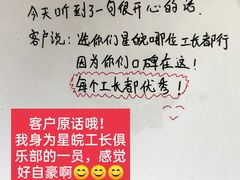 今天听到了一句很开心的话.
客户说:选你们星皖哪位工长都行
因为你们口碑在这!
每个工长都优秀!
客户原话哦!
我身为星皖工长俱
乐部的一员，感觉
好自豪啊😊😊😊